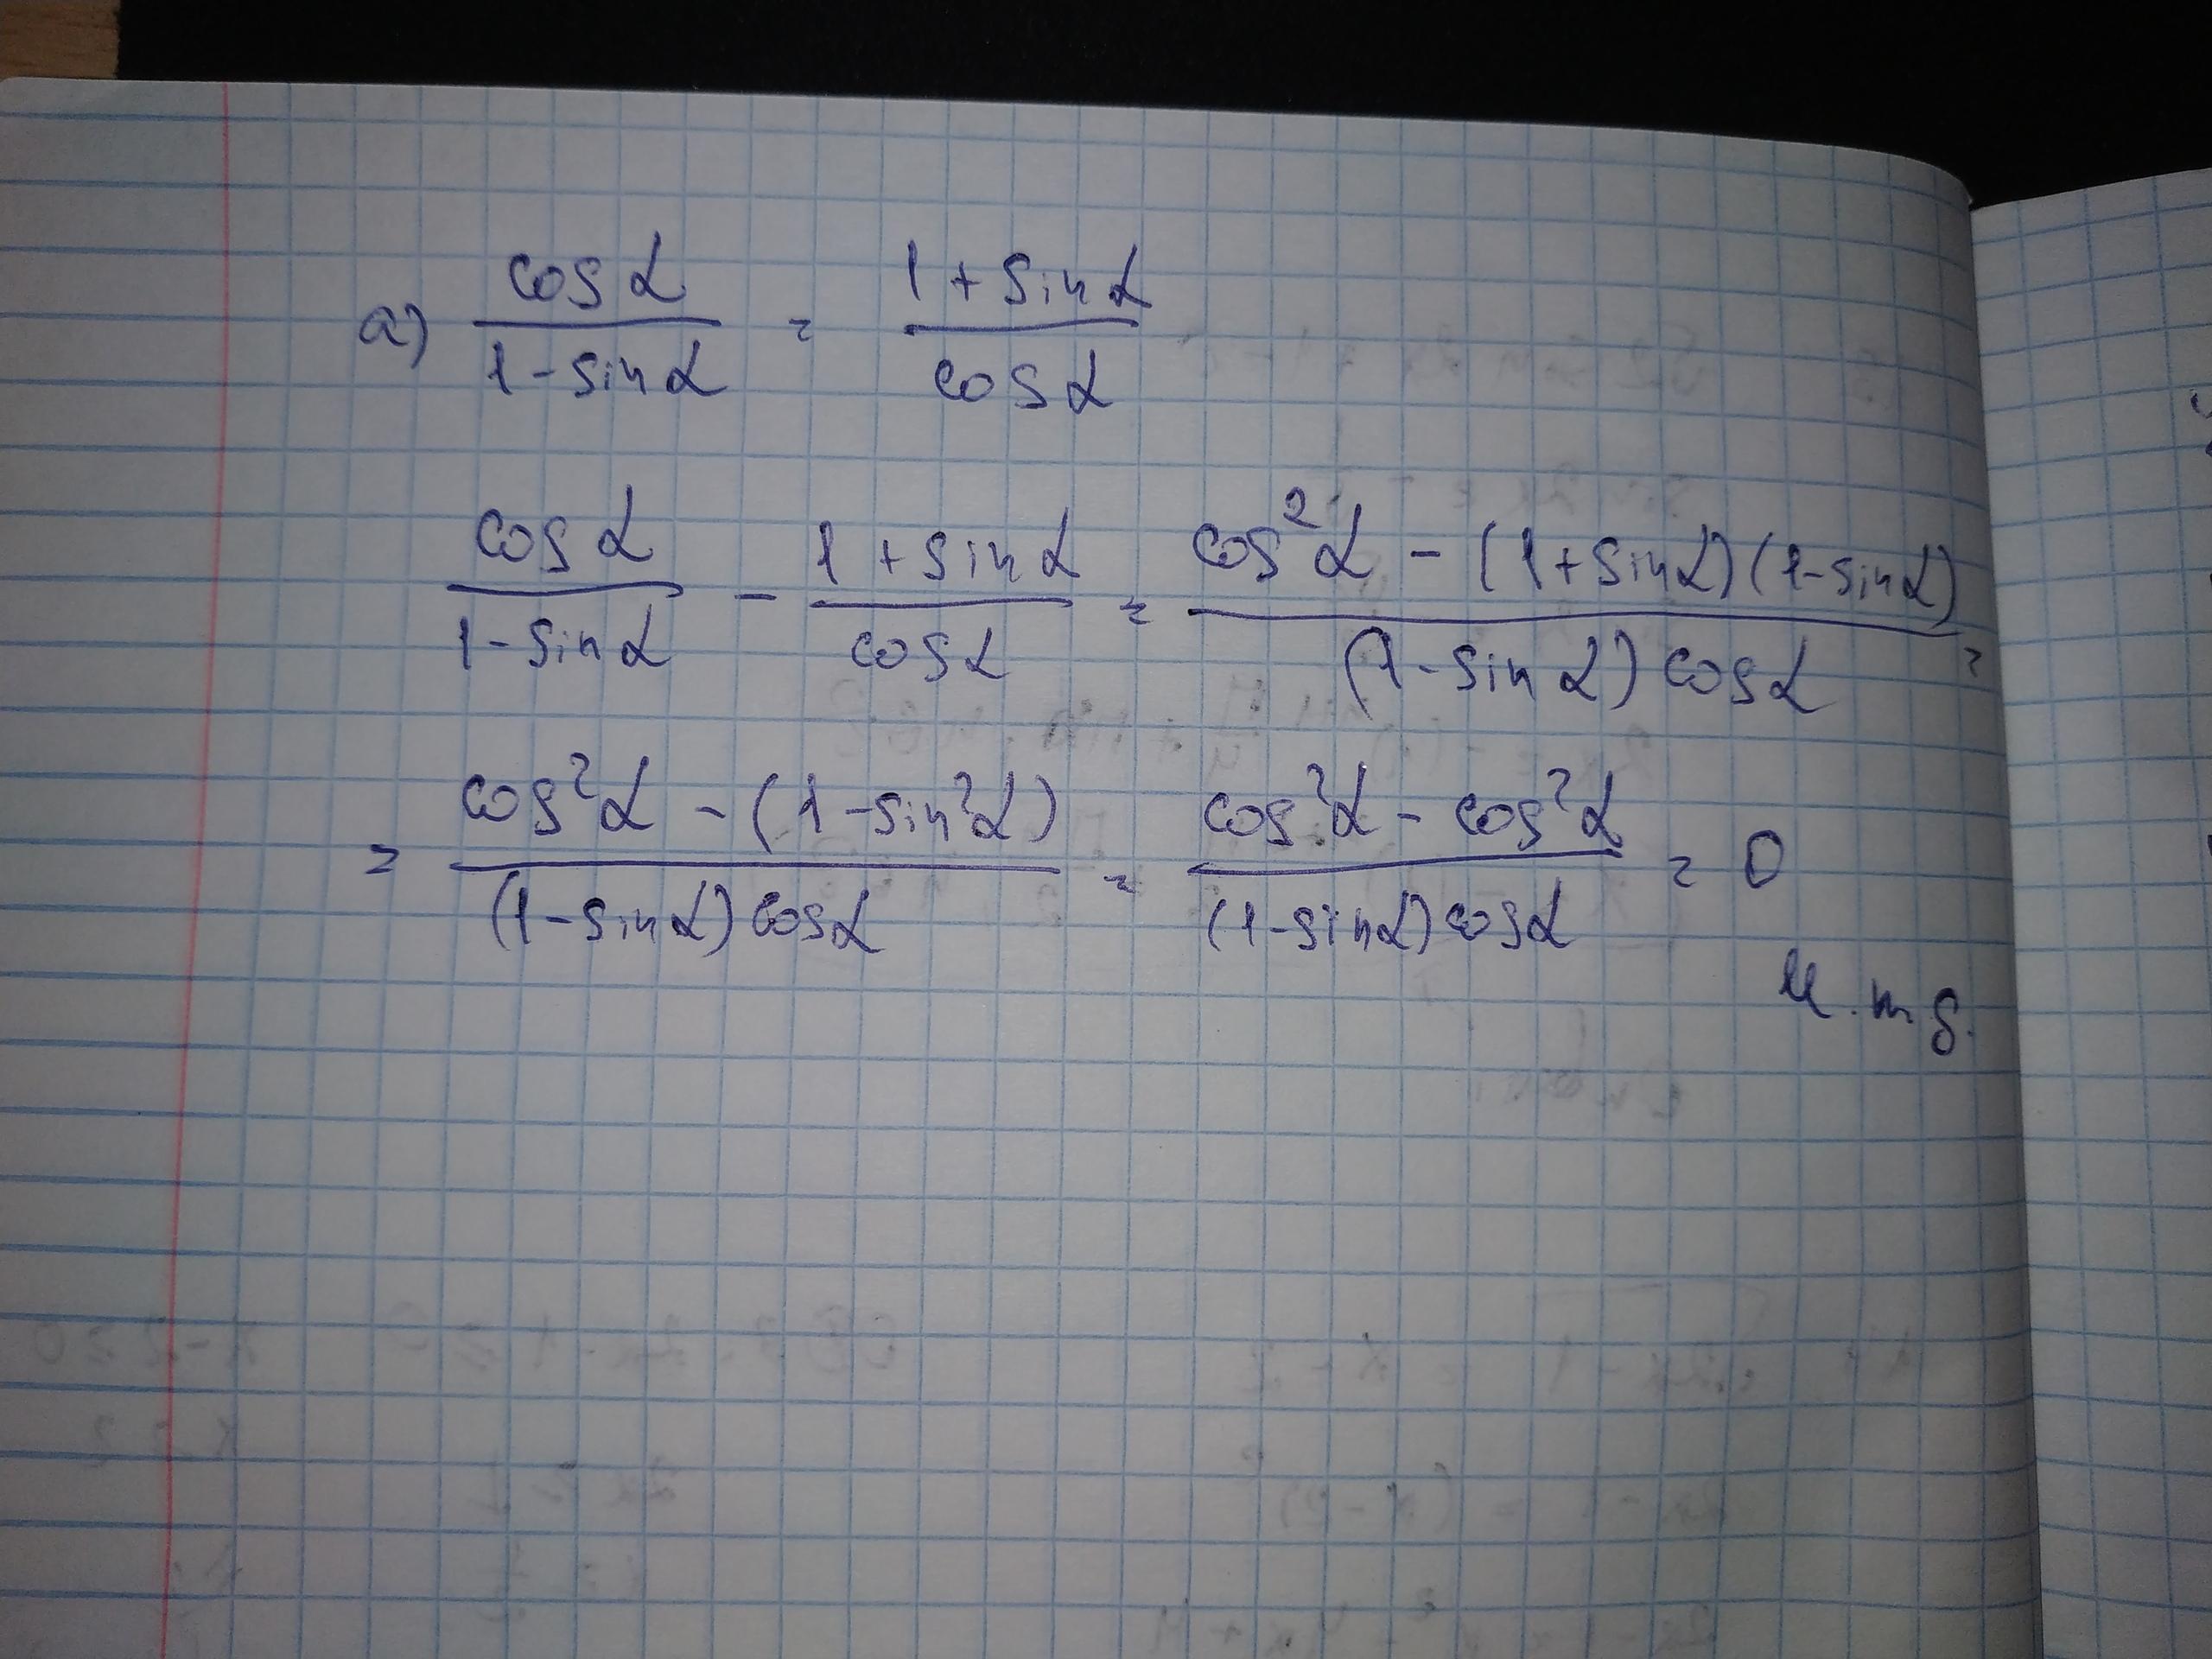 а) cos α / 1 - sin α = 1 + sin α / cos α
cos α / 1 - sin α - 1 + sin α / cos α = cos² α - (1 + sin α)(1 - sin α) / (1 - sin α) cos α =
= cos² α - (1 - sin² α) / (1 - sin α) cos α = cos² α - cos² α / (1 - sin α) cos α = 0
ч.т.д.